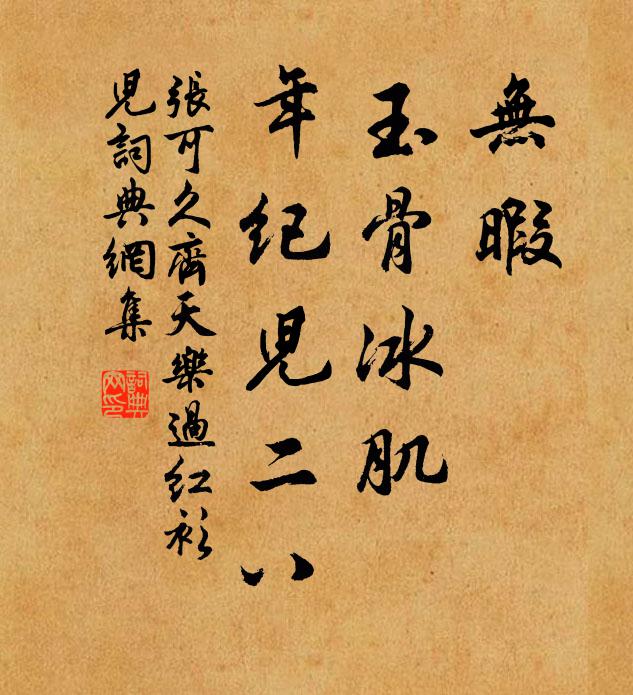 無暇
玉骨冰肌
年纪兒二八
張可久齊天樂過红衫
兒詞典網集
詞典
网印